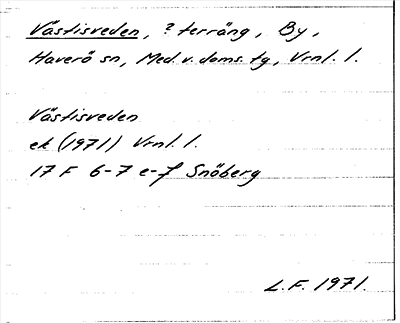 Västisveden, ? terräng, By,
Haverö sn, Med. v. doms. tg, Vrnl. l.
Västisveden
ek (1971) Vrnl. l.
17 F 6-7 e-f Snöberg
L.F. 1971.